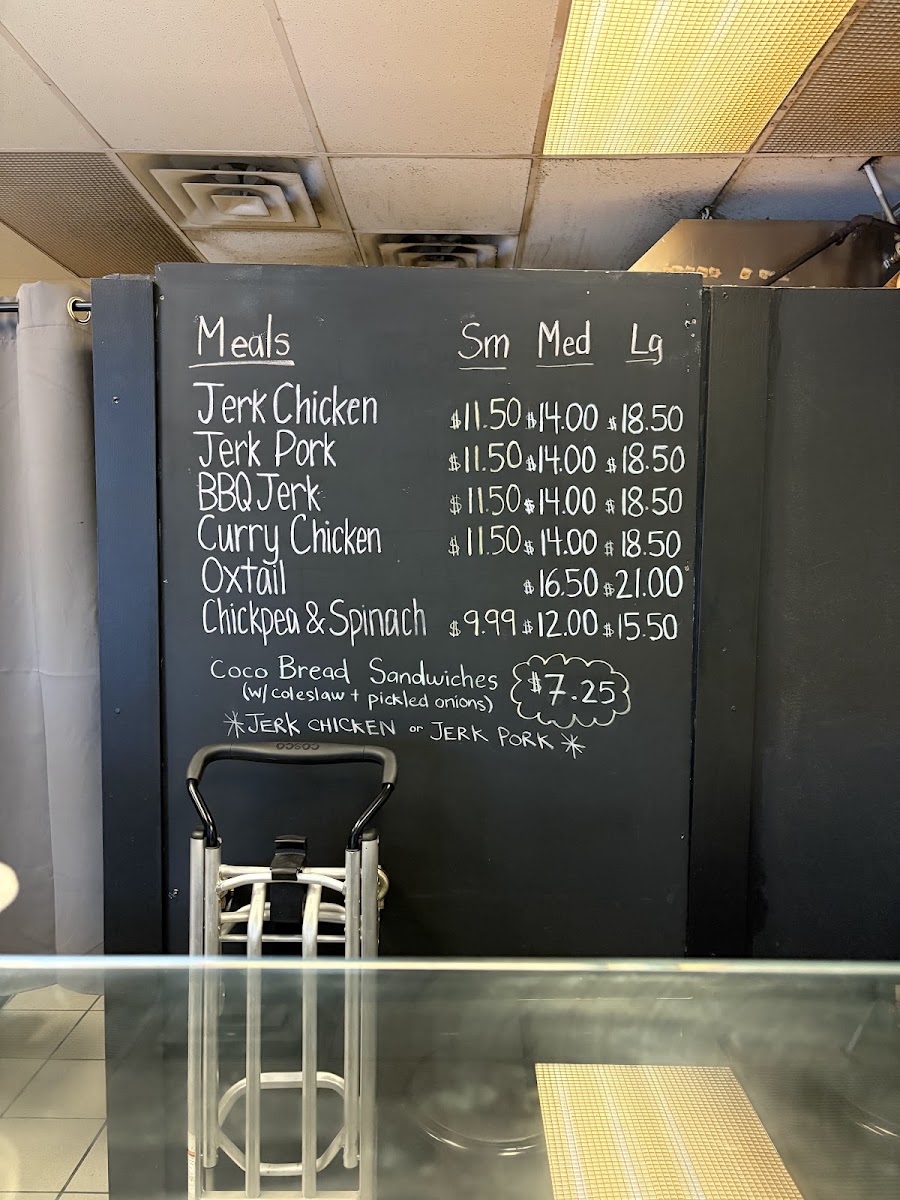 Meals Sm Med Lg
Jerk Chicken $11.50 $14.00 $18.50
Jerk Pork $11.50 $14.00 $18.50
BBQ Jerk $11.50 $14.00 $18.50
Curry Chicken $11.50 $14.00 $18.50
Oxtail $16.50 $21.00
Chickpea & Spinach $9.99 $12.00 $15.50
Coco Bread Sandwiches $7.25
(w/ coleslaw + pickled onions)
*JERK CHICKEN or JERK PORK*
COSCO